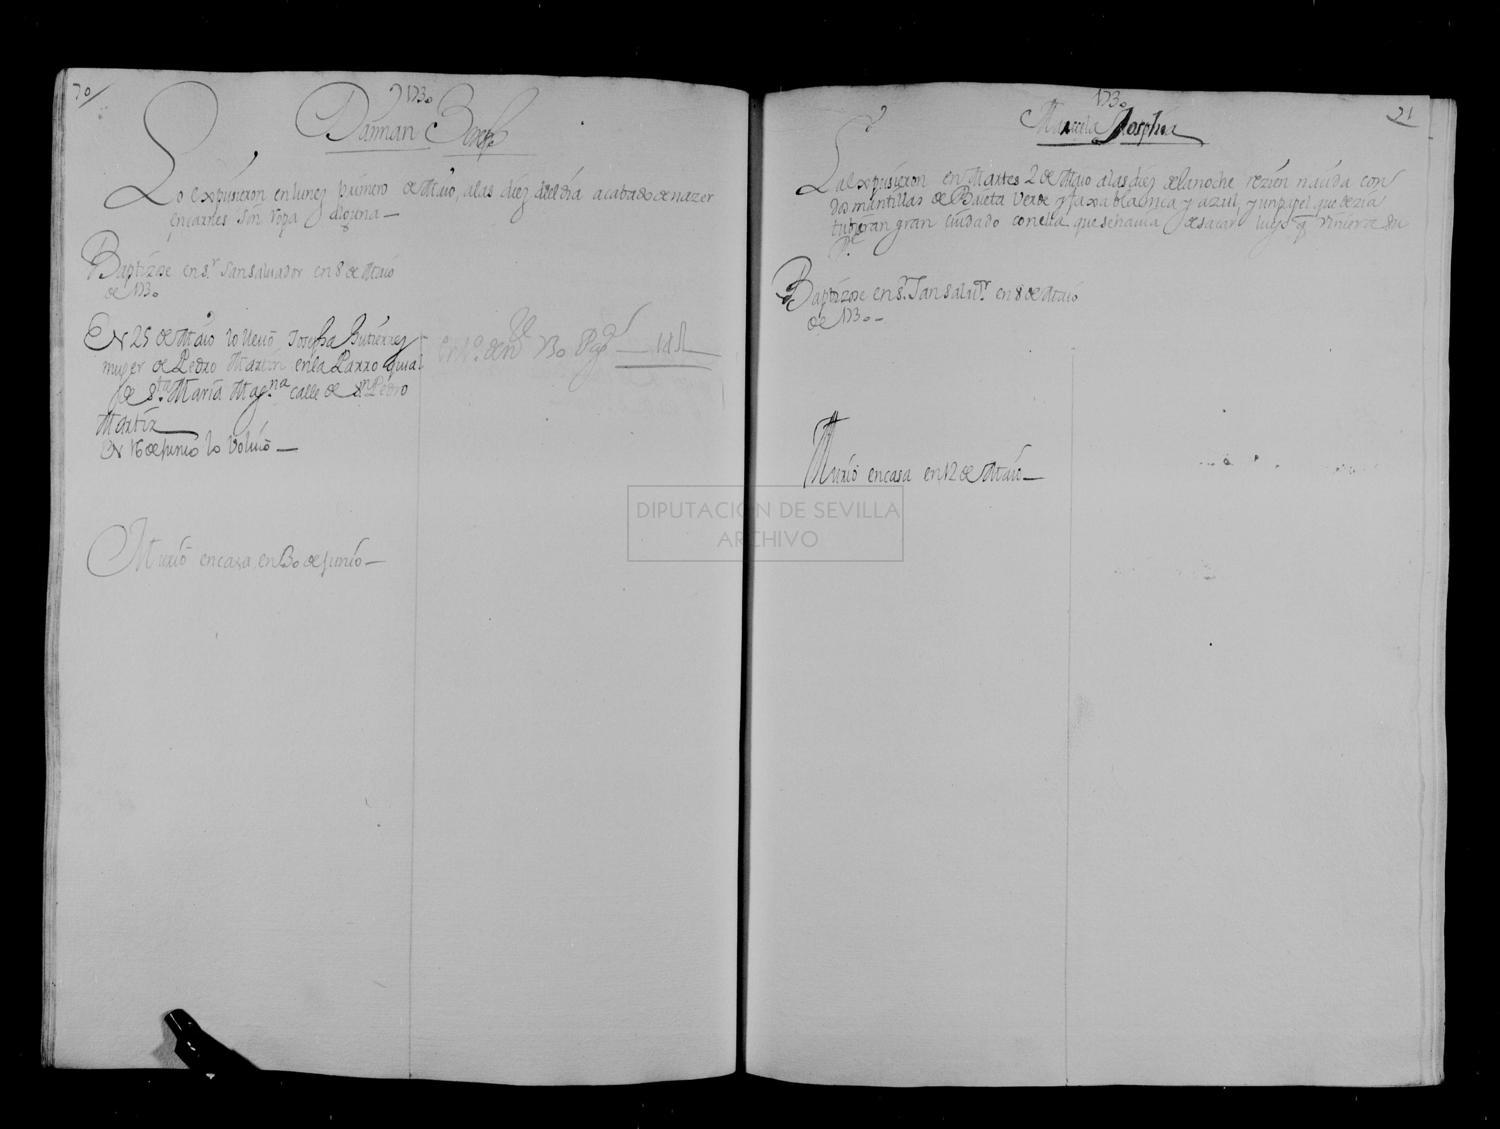 70
1730
Damian Joseph
Lo expusieron en lunes primero de Maio, a las diez del dia acabado de nazer
en carnes sin ropa alguna
Baptizose en Sr. San Saluador en 8 de Maio
de 1730
En 25 de Maio lo lleuó Josepha Gutierrez
muger de Pedro Martin en la Parroquia
de Sta. Maria Magna calle de Sn Pedro
Martir
En 16 de Junio lo Voluio
en 1º de 30
Murió en casa, en 30 de Junio
71
1730
Manuela Josepha
La expusieron en Martes 2 de Maio a las diez de la noche rezien nazida con
dos mantillas de Baieta Verde y faxa blanca y azul, y un papel que dezia
tubieran gran cuidado con ella que se hauia de sacar luego q viniera su
Pe.
Baptizose en Sr. San Saludr. en 8 de Maio
de 1730
Murió en casa en 12 de Maio
DIPUTACIÓN DE SEVILLA
ARCHIVO